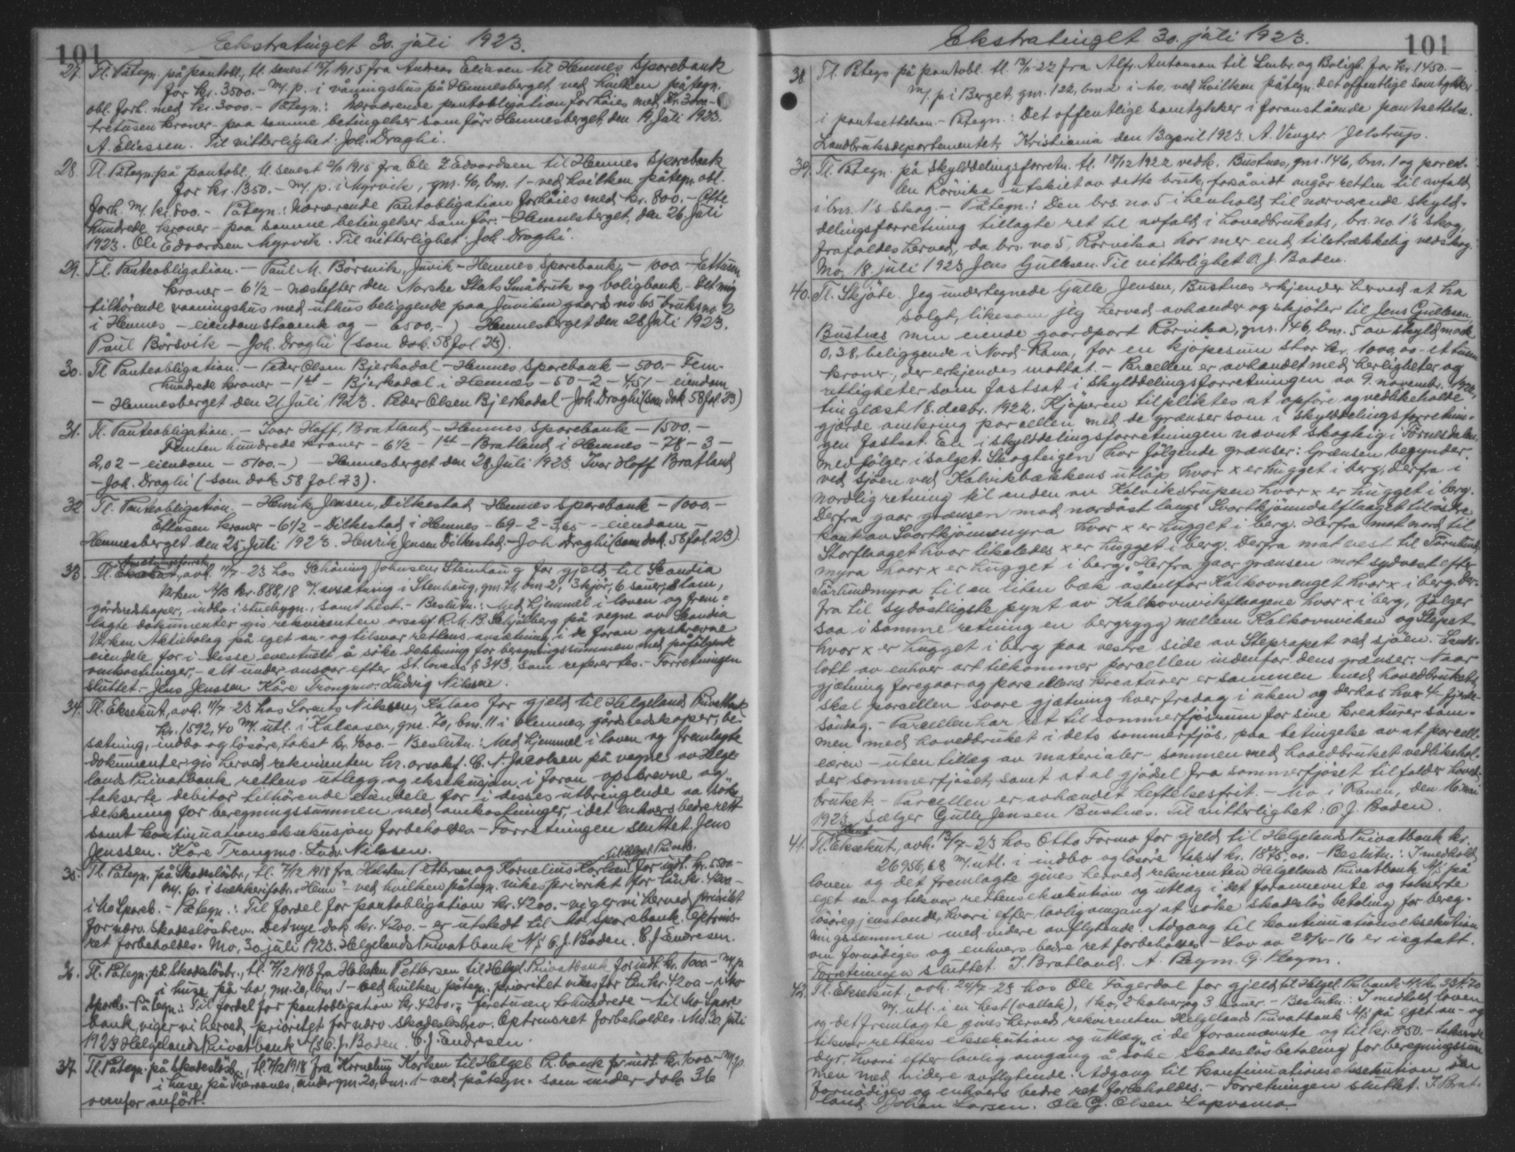 101
Ekstratinget 30. juli 1923.
27. Tl. Påtegn. på pantobl. tl. senest 1915 fra Andreas Eliasen til Hemnes Sparebank
for kr. 3500.- m/ p. i våningshus på Hemnesberget ved hvilken påtegn.
obl. forh. med kr. 3000.- Påtegn.: nærværende pantobligation forhöies med kr. 3000 -
tretusen kroner - paa samme betingelser som för. Hemnesberget, den 19. juli 1923.
A. Eliassen. Til vitterlighet: Joh. Draghi.
28. Tl. Påtegn. på pantobl. tl. senest 1915 fra Ole Edvardsen til Hemnes Sparebank
for kr. 1350.- m/ p. i Myrvik, gnr. bnr. 1 - ved hvilken påtegn. obl.
forh. m/ kr. 800.- Påtegn.: Nærværende Pantobligation forhöies med kr. 800. - (Otte
hundrede kroner - paa samme betingelser som för. - Hemnesberget, den 26. juli
1923. Ole Edvardsen Myrvik. Til vitterlighet: Joh. Draghi.
29. Tl. Panteobligation. - Paul M. Börsvik, Juvik - Hemnes Sparebank - 1000 - Ettusen
kroner - 6 1/2 - næstefter den Norske Stats Småbruk og boligbank - det mig
tilhörende vaaningshus med uthus beliggende paa Juviken gaards no 65 bruksno 2
i Hemnes - eiendomstaarnk og - 6500,-) Hemnesberget den 28 juli 1923.
Paul Borsvik - Joh. Draghi (som dok. 58 fol 23).
30. Tl. Panteobligation. - Peder Olsen Bjerkadal - Hemnes Sparebank - 500 - Fem
hundrede kroner - 1st - Bjerkadal i Hemnes - 50 - 2 - 1,51 - eiendom
- Hemnesberget den 21 Juli 1923. Peder Olsen Bjerkadal - Joh. Draghi (som dok 58 fol 23)
31. Tl. Panteobligation. - Ivar Hoff, Bratland - Hemnes Sparebank - 1500.-
Femten hundrede kroner - 6 1/2 - 1st - Bratland i Hemnes - 78 - 3 -
2,02 - eiendom - 5100.-) - Hemnesberget den 28 Juli 1923. Ivar Hoff Bratland
- Joh. Draghi (som dok 58 fol 23).
32. Tl. Panteobligation. - Henrik Jensen, Dilkestad - Hemnes Sparebank - 1000.-
Ettusen kroner - 6 1/2 - Dilkestad i Hemnes - 69 - 2 - 3,65 - eiendom -
Hemnesberget den 25 Juli 1923. Henrik Jensen Dilkestad - Joh Draghi (som dok. 58 fol. 23).
33. Tl. avh. 11/7-23 hos Schöning Johnsen, Stenhaug for gjeld til Scandia
Verken A/B kr. 888,18 m/ avsætning i Stenhaug, gnr. bnr. 2, 3 kjör, 6 sauer, slam,
gårdredskaper, indbo i stuebygn., samt hest. - Beslutn.: Med hjemmel i loven og frem-
lagte dokumenter gis rekvirenten orsakf. R. M. B. Schjelderg på vegne av Scandia
Verken Aktiebolag på eget an- og tilsvar rettens avsætning i de foran opskrevne
eiendele for i disse eventuelt å söke dekning for beregningssummen med påfölgende
omkostninger, alt under ansvar efter str. lovens § 343, som refereertes. - Forretningen
sluttet. Jens Jenssen Kåre Trongmo. Ludvig Nilsen.
34. Tl. Eksekut. avh. 11/7-23 hos Lorentz Nilssen, Kalaas for gjeld til Helgeland Privatbank
kr. 1592,40 m/ utl. i Kalaasen, gnr. 20, bnr. 11 i Hemnes, gårdsredskaper, be-
sætning, indbo og lösöre, takst kr. 4000. - Beslutn.: Med hjemmel i loven og fremlagte
dokumenter gis herved rekvirenten hr. orsakf. C. N. Jacobsen på vegne av Helge-
lands Privatbank rettens utlegg og eksekusjon i foran opskrevne og
takserte debitor tilhörende eiendele for i disses utbringende at söke
dekning for beregningssummen med omkostninger, idet enhvers bedre rett
samt kontinuationseksekusjon forbeholdes - Forretningen sluttet. Jens
Jenssen. Kåre Trongmo. Ludv. Nilssen.
35. Tl. Påtegn. på Skadeslösbr. tl. 7/12 1918 fra Halsten Pettersen og Kornelius Korshen til Helgel. Privatb. for indt. kr. 5000 -
m/ p. i "Heim" - ved hvilken påtegn. vikes prioritet for lån kr. 4200 -
i Mo Spareb. - Påtegn.: Til fordel for pantobligation kr. 4200.- viger vi herved prioritet
for ndrv. Skadeslösbrev. Det nye dok. kr. 4200.- er utstedt til Mo Sparebank. Optrins-
ret forbeholdes. Mo, 30 juli 1923. Helgelands Privatbank A/S C. J. Baden. E. J. Endresen.
36. Tl. Påtegn. på Skadeslösbr. tl. 7/12 1918 fra Halsten Pettersen til Helgel. Privatbank for indt. kr. 1000 - m/ p.
i huse på Mo, gnr. 20, bnr. 1 - ved hvilken påtegn. prioritet vikes for lån kr. 4200 - i Mo
Spareb. - Påtegn.: Til fordel for pantobligation kr. 4200.- firetusen tohundrede - til Mo Spare
bank, viger vi herved prioritet for ndrv. skadeslösbrev. Optrinsret forbeholdes. Mo 30. juli
1923 Helgelands Privatbank A/S C. J. Baden. E. J. Endresen.
37. Tl. Påtegn. på Skadeslösbr. tl. 7/12 1918 fra Kornelius Korshen til Helgel. Pr. bank for indt. kr. 1000 - m/ p.
i huse på under gnr. 20, bnr. 1 - ved påtegn. som under dok 36
ovenfor anfört.
101
Ekstratinget 30. juli 1923.
38. Tl. Påtegn på pantobl. tl. 22 fra Alfr. Antonsen til Småbr. og Boligb. for kr. 1450.-
m/ p. i Berget, gnr. 122, bnr. 2 i Mo, ved hvilken påtegn. det offentlige samtykker
i pantsettelsen. - Påtegn.: Det offentlige samtykker i foranstående pantsettelse.
Landbruksdepartementet, Kristiania den 13 april 1923. A. Venger Jelstrup.
39. Tl. Påtegn. på Skylddelingsforretn. tl. 18/12 1922 vedk. Bustnes, gnr. 146, bnr. 1 og parcel-
len Rörvika - utskilt av dette bruk, forsåvidt angår retten til avfald
i bnr. 1's skog. - Påtegn.: Den brs. no 5 i henhold til nærværende skyld-
delingsforretning tillagte ret til avfald i hovedbrukets, brs. no 1's skog,
frafaldes herved, da brs. no 5, Rörvika har mer end tilstrækkelig vedskog.
Mo, 18. juli 1923 Jens Gullesen. Til vitterlighet O. J. Baden.
40. Tl. Skjöte. Jeg undertegnede Gulle Jensen, Bustnes erkjender herved at ha
solgt, likesom jeg herved avhænder og skjöter til Jens Gullesen
Bustnes min eiende gaardpart Rörvika, gnr. 146, bnr. 5 av skyld mark
0,38 beliggende i Nord-Rana, for en kjöpesum stor kr. 1000,00 - et tusen
kroner, der erkjendes mottat. - Parcellen er avhændet med herligheter og
rettigheter som fastsat i skylddelingsforretningen av 9. novembr. 1922,
tinglæst 18. decbr. 1922. Kjöperen tilpliktes at opföre og vedlikeholde
gjærde omkring parcellen med de grænser som i skylddelingsforretnin-
gen fastsat. En i skylddelingsforretningen nævnt skogteig i Törneldalen
medfölger i salget. Skogteigen har fölgende grænser: Grænsen begynder
ved sjöen ved Kalvikbækkens utlöp hvor x er hugget i berg, derfra i
nordlig retning til enden av Kalvikstrupen hvor x er hugget i berg.
Derfra gaar grænsen mod nordöst langs Svortkjönndalflaaget til östre
kant av Svortkjönnmyra hvor x er hugget i berg. Herfra mot nord til
Storflaaget hvor likeledes x er hugget i berg. Derfra mot vest til Törrhund-
myra hvor x er hugget i berg. Herfra gaar grænsen mot sydvest efter
Törrhundmyra til en liten bæk ovenfor Kalkovnenget hvor x i berg. Der-
fra til sydostligste pynt av Kalkovnvikflaagene hvor x i berg, fölger
saa i samme retning en bergrygg mellem Kalkovnviken og Slepet
hvor x er hugget i berg paa vestre side av Sleprapet ved sjöen. Land-
loft av enhver art tilkommer parcellen indenfor dens grænser. - Naar
gjætning foregaar og parcellens kreaturer er sammen med hovedbrukets,
skal parcellen svare gjætning hver fredag i uken og derhos hver 4. fjerde
söndag. - Parcellen har ret til sommerfjösrum for sine kreaturer sam-
men med hovedbruket i dets sommerfjös, paa betingelse av at parcell-
eieren - uten tillæg av materialer - sammen med hovedbruket vedlikehol-
der sommerfjöset, samt at al gjödsel fra sommerfjöset tilfalder hoved-
bruket. - Parcellen er avhændet heftelsesfrit. - Mo i Ranen, den 16 mai
1923. Sælger Gulle Jensen Bustnes. Til vitterlighet: O J. Baden.
41. Tl. Eksekut. avh. 13/7-23 hos Otto Formo for gjeld til Helgelands Privatbank kr.
26956,68 m/ utl. i indbo og lösöre takst kr. 1875,00. - Beslutn.: I medhold
loven og det fremlagte gives herved rekvirenten Helgelands Privatbank A/S på
eget an- og tilsvar rettens eksekution og utlæg i det forannævnte og takserte
lösöregjenstande, hvori efter lovlig omgang at söke skadeslös betaling for bereg-
ningssummen med videre avflytende. Adgang til kontinuationseksekution
om fornödiges og enhvers bedre ret forbeholdes. - Lov av 28/8-16 er iagttatt.
Forretningen sluttet. J. Bratland. A. Plegm. G. Plegm.
42. Tl. Eksekut. avh. 24/7-23 hos Ole Fagerdal for gjeld til Helgel. Pr. bank A/S kr.
m. utl. i en hest (vallak), 1 ko, 2 kalver og 3 sauer - Beslutn.: I medhold loven
og det fremlagte gives herved rekvirenten Helgelands Privatbank A/S på eget an- og
tilsvar rettens eksekution og utlæg i de forannævnte og til kr. 850.- takserte
dyr, hvori efter lovlig omgang å söke skadeslös betaling for beregningssum-
men med videre avflytende. Adgang til kontinuationseksekution om
fornödiges og enhvers bedre ret forbeholdes. - Forretningen sluttet. J. Brat-
land. Johan Larsen. Ole G. Olsen Lapvamo.